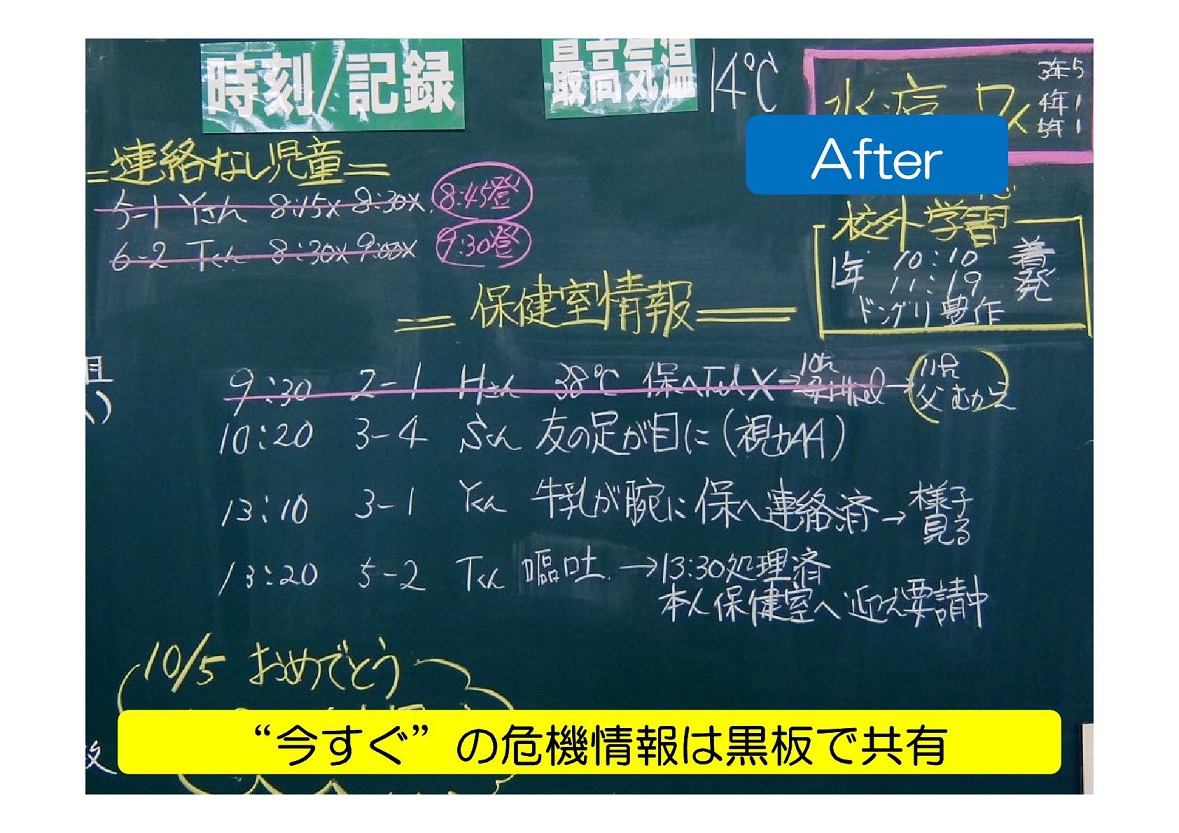 時刻/記録
最高気温 14℃
水痘
3年5
4年1
5年1
After
=連絡なし児童=
5-1 Yさん 8:15× 8:30× 8:45登
6-2 Tくん 8:30× 9:00× 9:30登
校外学習
1年 10:10 着
11:19 発
ドングリ豊作
=保健室情報=
9:30 2-1 Hさん 38℃ 保へTel× → → 父むかえ
10:20 3-4 Sくん 友の足が目に(視力AA)
13:10 3-1 Yくん 牛乳が腕に 保へ連絡済→様子
見る
13:20 5-2 Tくん 嘔吐 →13:30処理済
本人保健室へ 迎え要請中
10/5 おめでとう
“今すぐ”の危機情報は黒板で共有